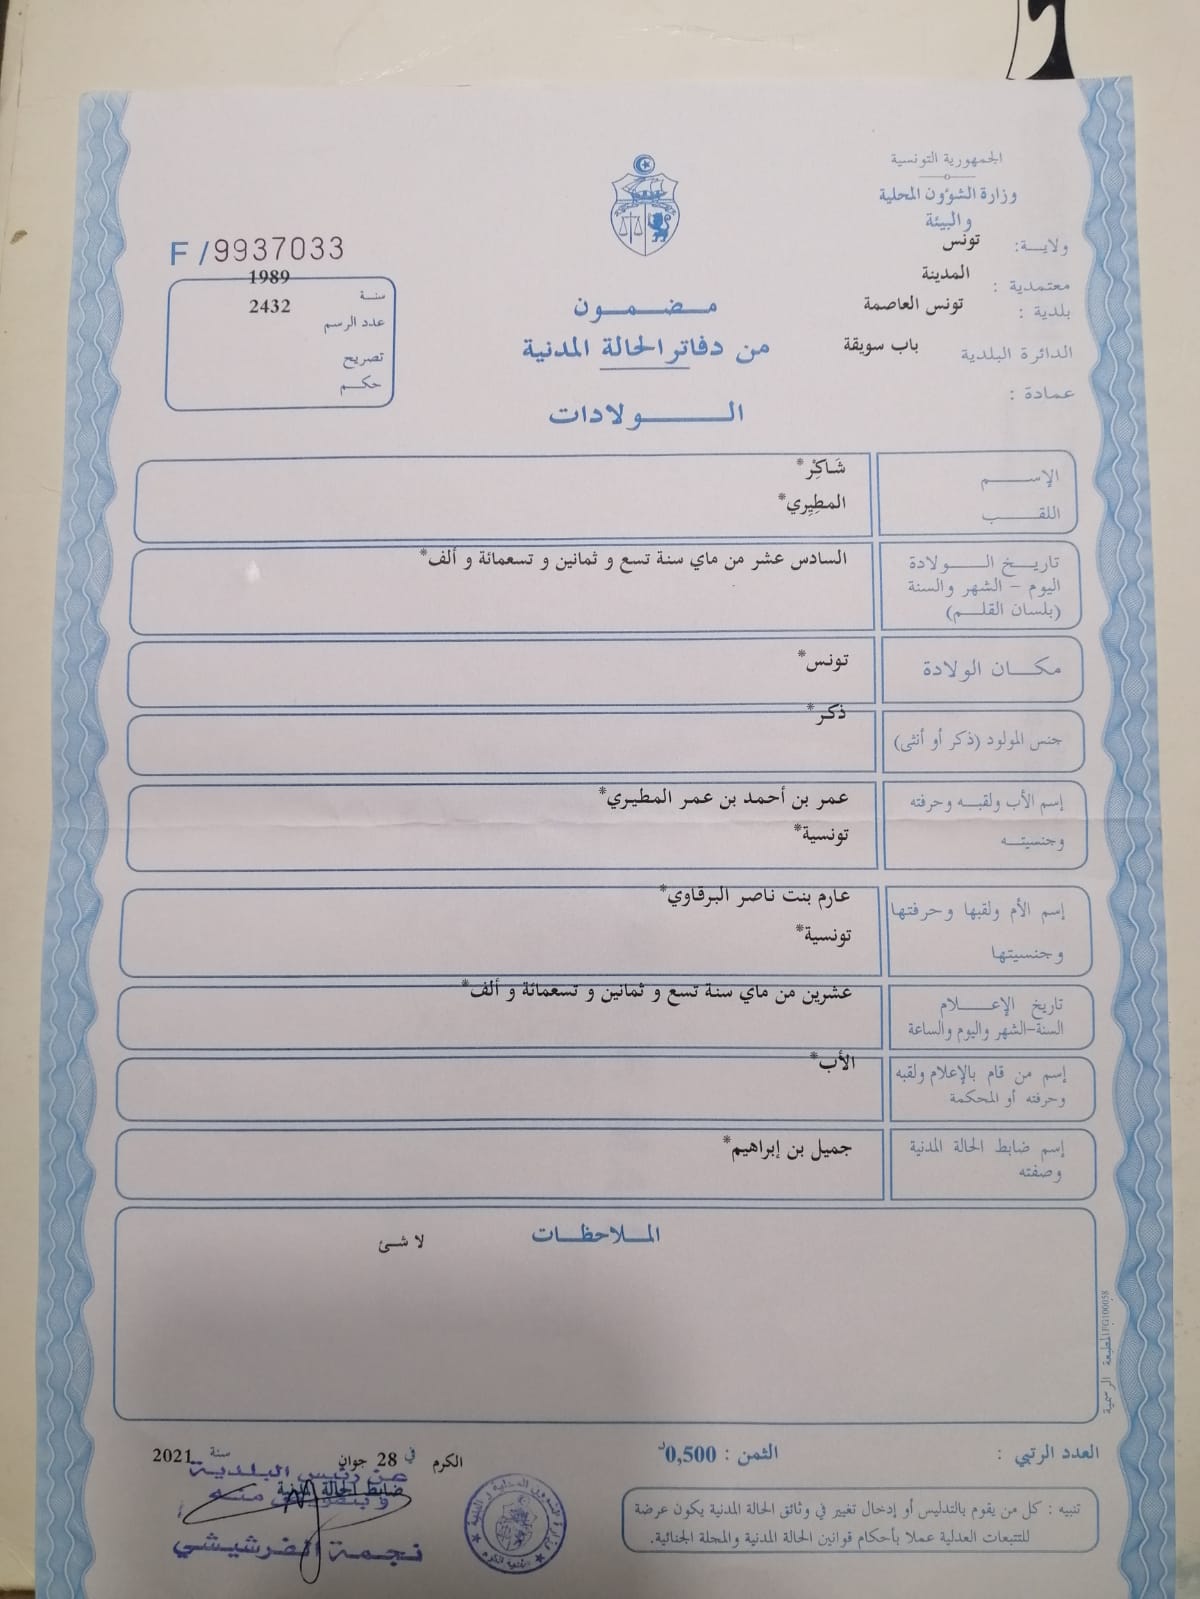 الجمهورية التونسية
وزارة الشؤون المحلية
والبيئة
ولايـــة: تونس
معتمدية : المدينة
بلدية : تونس العاصمة
الدائرة البلدية باب سويقة
عمادة :
F/9937033
سنـة 1989
عدد الرسم 2432
تصريح
حكـــم
مـضـمـــون
من دفاتر الحالة المدنية
الـــولادات
الإســـم شَاكِرْ*
اللقـــب المطِيِري*
تاريـــخ الـــولادة السادس عشر من ماي سنة تسع و ثمانين و تسعمائة و ألف*
اليوم – الشهر والسنة
(بلسان القلـــم)
مكـــان الولادة تونس*
جنس المولود (ذكر أو أنثى) ذكر*
إسم الأب ولقبـــه وحرفته عمر بن أحمد بن عمر المطيري*
وجنسيتـــه تونسية*
إسم الأم ولقبها وحرفتـها عارم بنت ناصر البرقاوي*
وجنسيتـها تونسية*
تاريخ الإعـــلام عشرين من ماي سنة تسع و ثمانين و تسعمائة و ألف*
السنة-الشهر واليوم والساعة
إسم من قام بالإعلام ولقبه الأب*
وحرفته أو المحكمة
إسم ضابط الحالة المدنية جميل بن إبراهيم*
وصفته
المـلاحظـــات
لا شئ
المطبعة الرسمية FG100058
العدد الرتبي :
الثمن : 0,500د
الكرم في 28 جوان سنة 2021
عن رئيس البلدية
ضابط الحالة المدنية
وبتفويض منه
نجمة الفرشيشي
تنبيه : كل من يقوم بالتدليس أو إدخال تغيير في وثائق الحالة المدنية يكون عرضة
للتتبعات العدلية عملا بأحكام قوانين الحالة المدنية والمجلة الجنائية.